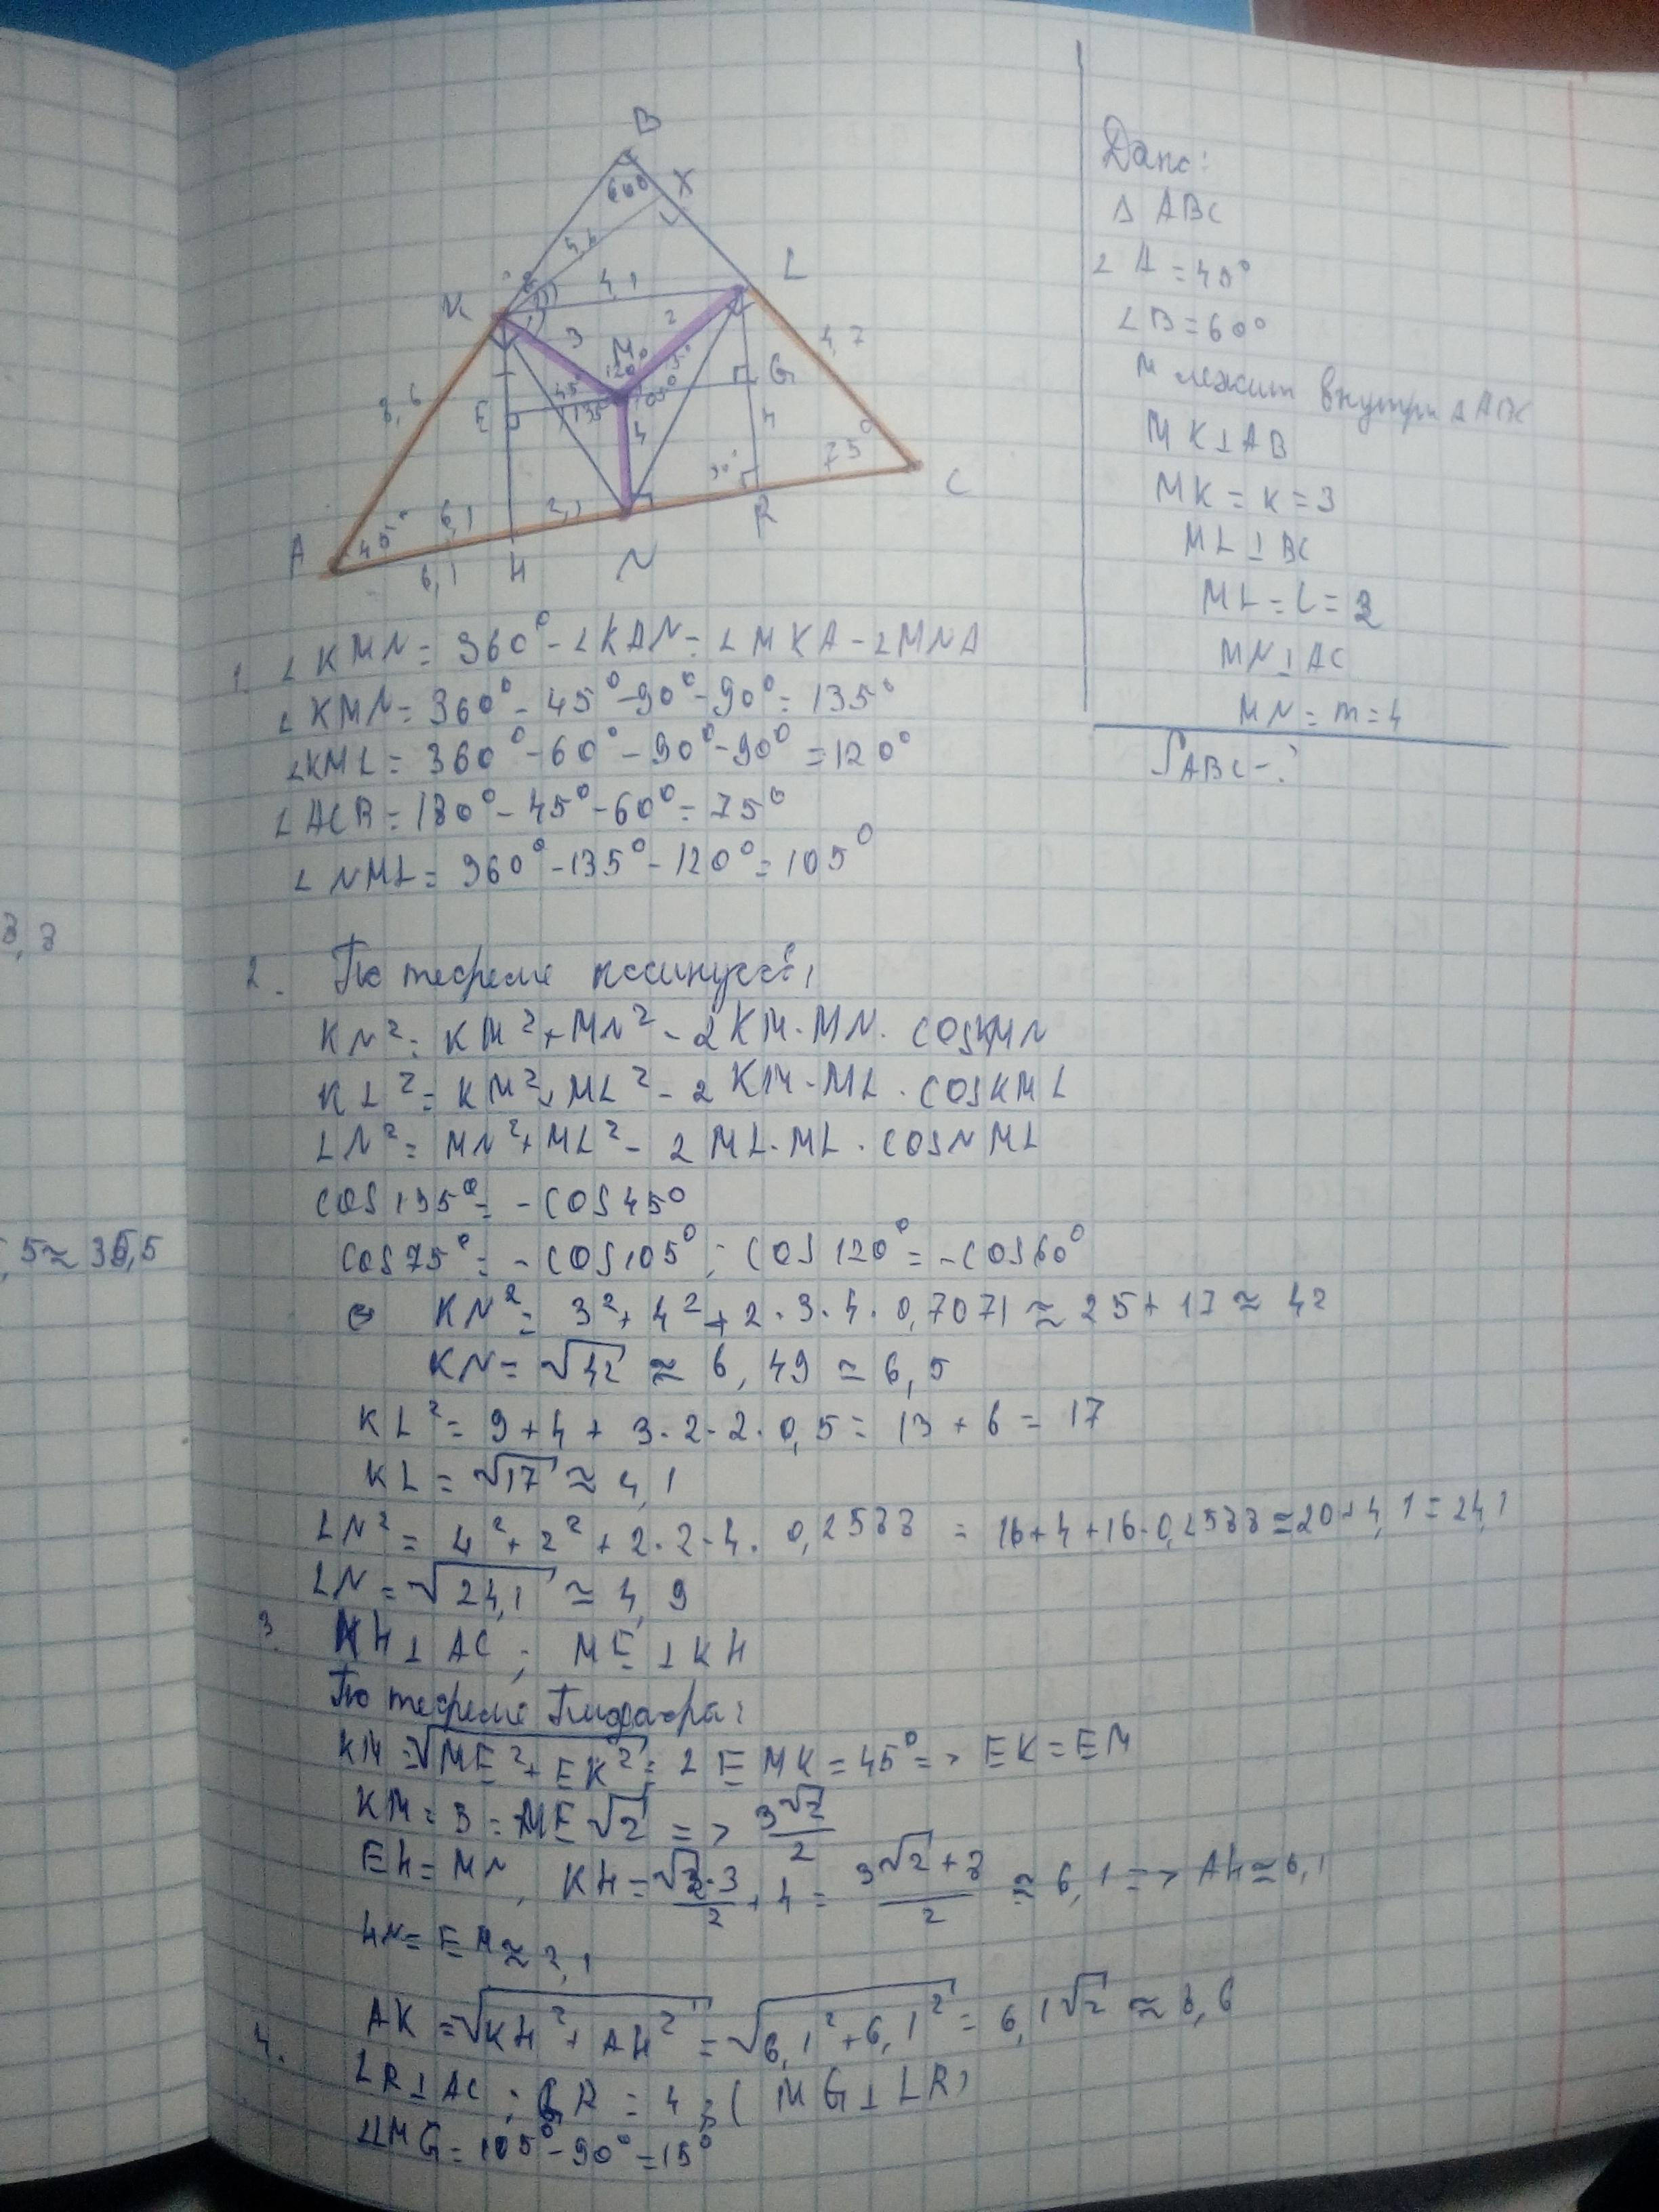 B
60°
X
4,1
L
K
3
2
M
120°
4,7
8,6
E
45°
135°
105°
G
4
4
75°
C
A
45°
6,1
2,1
R
6,1
H
N
Дано:
Δ ABC
∠ A = 45°
∠B = 60°
M лежит внутри Δ ABC
MK ⊥ AB
MK = K = 3
ML ⊥ BC
ML = L = 2
MN ⊥ AC
MN = m = 4
SABC - ?
1. ∠ KMN = 360° - ∠KAN - ∠MKA - ∠MNA
∠ KMN = 360° - 45° - 90° - 90° = 135°
∠KML = 360° - 60° - 90° - 90° = 120°
∠ ACB = 180° - 45° - 60° = 75°
∠ NML = 360° - 135° - 120° = 105°
2. По теореме косинусов,
KN² = KM² + MN² - 2 KM · MN · COSKMN
KL² = KM² + ML² - 2 KM · ML · COSKML
LN² = MN² + ML² - 2 ML · ML · COSNML
COS 135° = - COS 45°
COS 75° = - COS 105° ; COS 120° = - COS 60°
KN² = 3² + 4² + 2 · 3 · 4 · 0,7071 ≈ 25 + 17 ≈ 42
KN = √42 ≈ 6,49 ≈ 6,5
KL² = 9 + 4 + 3 · 2 · 2 · 0,5 = 13 + 6 = 17
KL = √17 ≈ 4,1
LN² = 4² + 2² + 2 · 2 · 4 · 0,2588 = 16 + 4 + 16 · 0,2588 ≈ 20 + 4,1 = 24,1
LN = √24,1 ≈ 4,9
3. KH ⊥ AC ; ME ⊥ KH
По теореме Пифагора:
KM = √ME² + EK² ; ∠ EMK = 45° => EK = EM
KM = 3 = ME √2 => 3√2/2
EH = MN, KH = √2·3/2 + 4 = 3√2+8/2 ≈ 6,1 => AH ≈ 6,1
HN = EM ≈ 2,1
AK = √KH² + AH² = √6,1² + 6,1² = 6,1√2 ≈ 8,6
4. LR ⊥ AC ; GR = 4 ; ( MG ⊥ LR)
∠LMG = 105° - 90° = 15°
5 ≈ 35,5